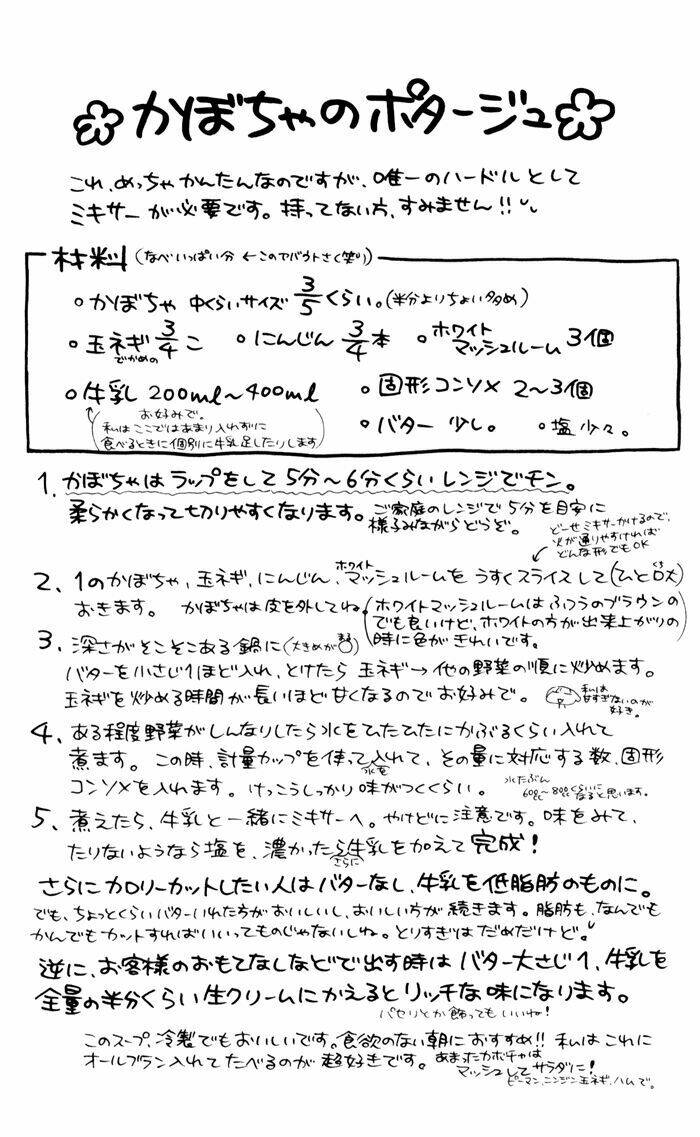 かぼちゃのポタージュ
これ、めっちゃかんたんなのですが、唯一のハードルとして
ミキサーが必要です。持ってない方、すみません!!
材料(なべいっぱい分 ←このアバウトさ(笑))
○かぼちゃ 中くらいサイズ 3/5くらい。(半分よりちょい多め)
○玉ネギ 3/4こ ○にんじん 3/4本 ○ホワイトマッシュルーム 3個
でかめの
○牛乳 200ml〜400ml ○固形コンソメ 2〜3個
お好みで。
私はここではあまり入れずに
食べるときに個別に牛乳足したりします
○バター 少し。 ○塩 少々。
1. かぼちゃはラップをして5分〜6分くらいレンジでチン。
柔らかくなって切りやすくなります。ご家庭のレンジで5分を目安に
様子みながらどうぞ。
どーせミキサーかけるので、
火が通りやすければ
どんな形でもOK
2. 1のかぼちゃ、玉ネギ、にんじん、ホワイトマッシュルームをうすくスライスして(ひと口大)
おきます。 かぼちゃは皮を外してね。
(ホワイトマッシュルームはふつうのブラウンの
でも良いけど、ホワイトの方が出来上がりの
時に色がきれいです。)
3. 深さがそこそこある鍋に(大きめが)
バターを小さじ1ほど入れ、とけたら 玉ネギ→他の野菜の順に炒めます。
玉ネギを炒める時間が長いほど甘くなるのでお好みで。
私は
甘すぎないのが
好き。
4. ある程度野菜がしんなりしたら水をひたひたにかぶるくらい入れて
煮ます。この時、計量カップを使って水を入れて、その量に対応する数、固形
コンソメを入れます。けっこうしっかり味がつくくらい。
水たぶん
600cc〜800ccくらいに
なると思います。
5. 煮えたら、牛乳と一緒にミキサーへ。やけどに注意です。味をみて、
たりないようなら塩を、濃かったらさらに牛乳を加えて完成!
さらにカロリーカットしたい人はバターなし、牛乳を低脂肪のものに。
でも、ちょっとくらいバターいれた方がおいしいし、おいしい方が続きます。脂肪も、なんでも
かんでもカットすればいいってものじゃないしね。とりすぎはだめだけど。
逆に、お客様のおもてなしなどで出す時はバター大さじ1、牛乳を
全量の半分くらい生クリームにかえるとリッチな味になります。
パセリとか飾ってもいいね!
このスープ、冷製でもおいしいです。食欲のない朝におすすめ!! 私はこれに
オールブラン入れてたべるのが超好きです。
あまったカボチャは
マッシュしてサラダに!
ピーマン、ニンジン、玉ネギ、ハムで。